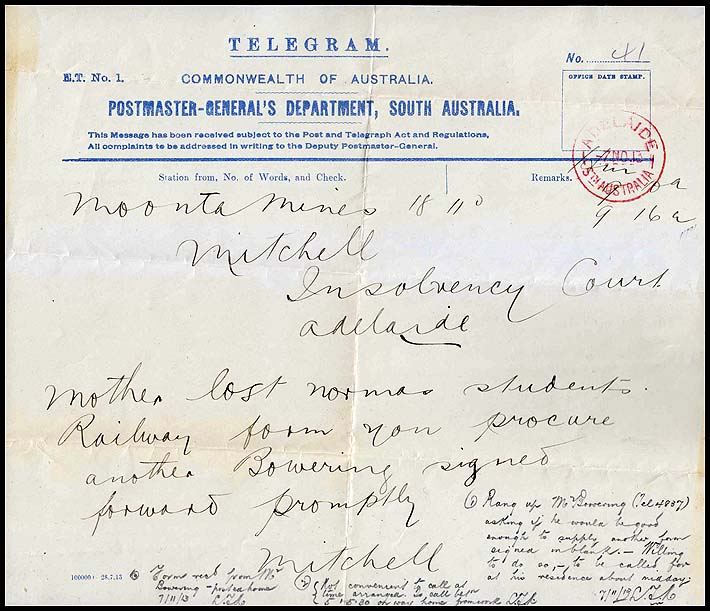 TELEGRAM.
No. 41
E.T. No. 1.
COMMONWEALTH OF AUSTRALIA.
OFFICE DATE STAMP.
POSTMASTER-GENERAL'S DEPARTMENT, SOUTH AUSTRALIA.
This Message has been received subject to the Post and Telegraph Act and Regulations,
All complaints to be addressed in writing to the Deputy Postmaster-General.
ADELAIDE
7 NO. 13
STH AUSTRALIA
Station from, No. of Words, and Check.
Remarks.
Moonta Mines 18 11D
9 16 a
Mitchell
Insolvency Court
Adelaide
Mother lost normas students
Railway form you procure
another Bowering signed
forward promptly
Mitchell
① Rang up Mr Bowering (Tel 4837)
asking if he would be good
enough to supply another form
signed in blank - Willing
to do so, - to be called for
at his residence about midday
7/11/13
100000: 28.7.13
③ Form recd from Mr
Bowering - posted home
7/11/13
② Not convenient to call at
time arranged is call betn
5 & 5.30 on way home from work